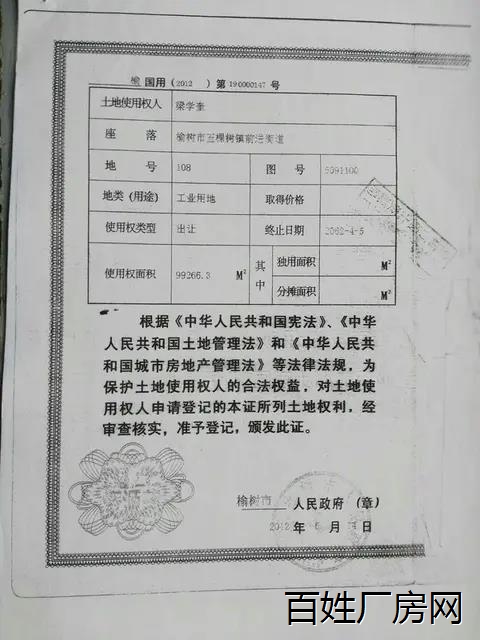 榆 国用(2012 )第190000147号
土地使用权人 梁学奎
座 落 榆树市五棵树镇前进街道
地 号 108 图 号 5591100
地类(用途) 工业用地 取得价格
使用权类型 出让 终止日期 2062-4-5
使用权面积 99266.3 M² 其中 独用面积 M²
分摊面积 M²
根据《中华人民共和国宪法》、《中华
人民共和国土地管理法》和《中华人民共
和国城市房地产管理法》等法律法规,为
保护土地使用权人的合法权益,对土地使
用权人申请登记的本证所列土地权利,经
审查核实,准予登记,颁发此证。
榆树市 人民政府 (章)
2012 年 月 日
百姓厂房网